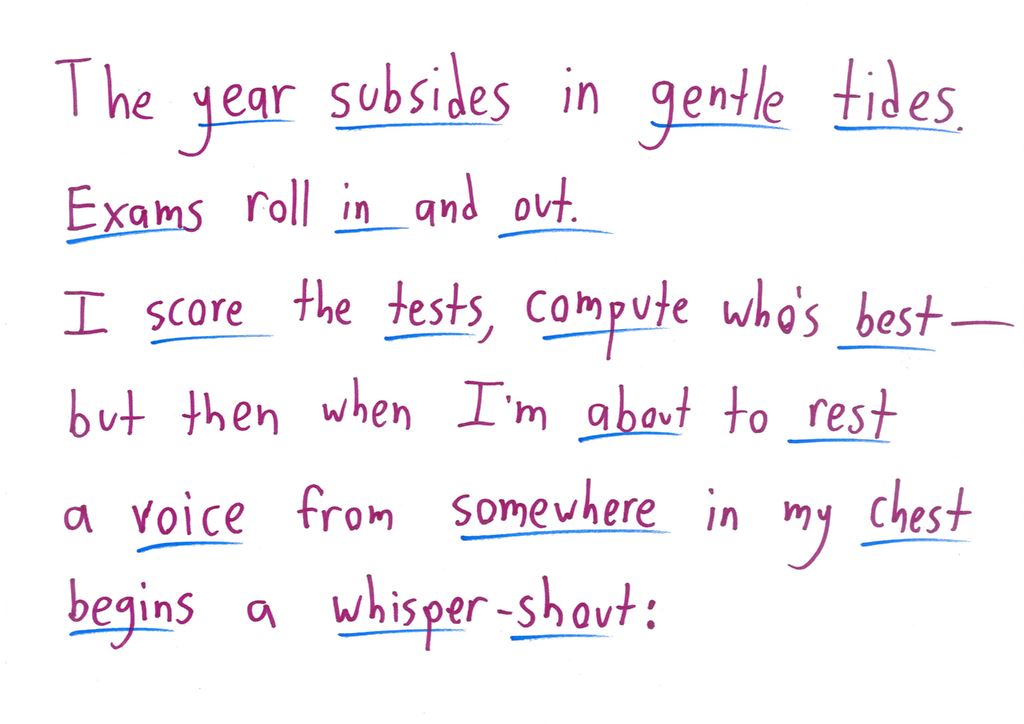 The year subsides in gentle tides.
Exams roll in and out.
I score the tests, compute who's best—
but then when I'm about to rest
a voice from somewhere in my chest
begins a whisper-shout: